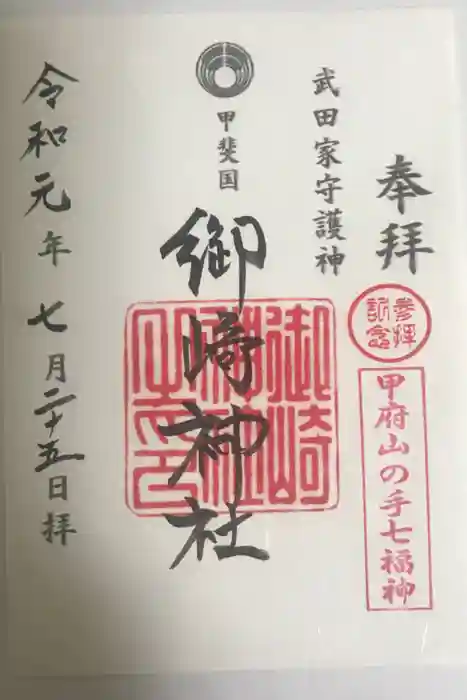 奉拝
参拝
記念
甲府山の手七福神
武田家守護神
甲斐国
御崎神社
御崎
神社
之印
令和元年七月二十五日拝